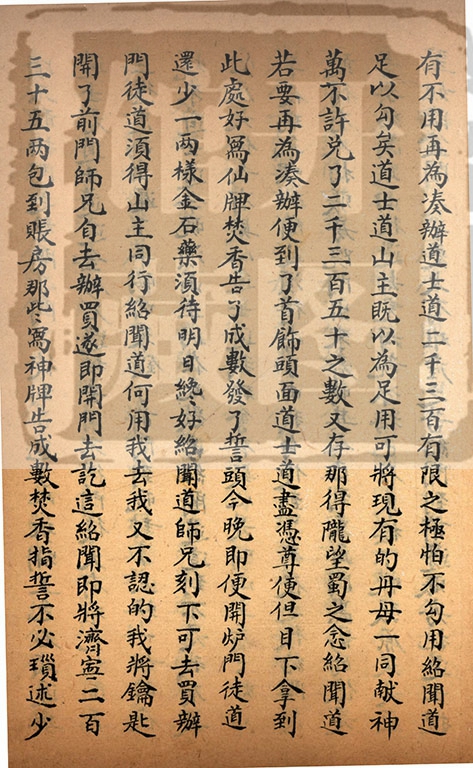 有不用再為湊辦道士道二千三百有限之極怕不勾用紹聞道
足以勾矣道士道山主既以為足用可將現有的丹母一同献神
萬不許兑了二千三百五十之數又存那得隴望蜀之念紹聞道
若要再為凑辦便到了首飾頭面道士道盡憑尊便但目下拿到
此處好寫仙牌焚香告了成數發了誓頭今晚即便開炉門徒道
還少一两樣金石藥須待明日纔好紹聞道師兄刻下可去買辦
門徒道須得山主同行紹聞道何用我去我又不認的我將鑰匙
開了前門師兄自去辦買遂即開門去訖這紹聞即將濟寧二百
三十五两包到賬房那些寫神牌告成數焚香指誓不必瑣述少